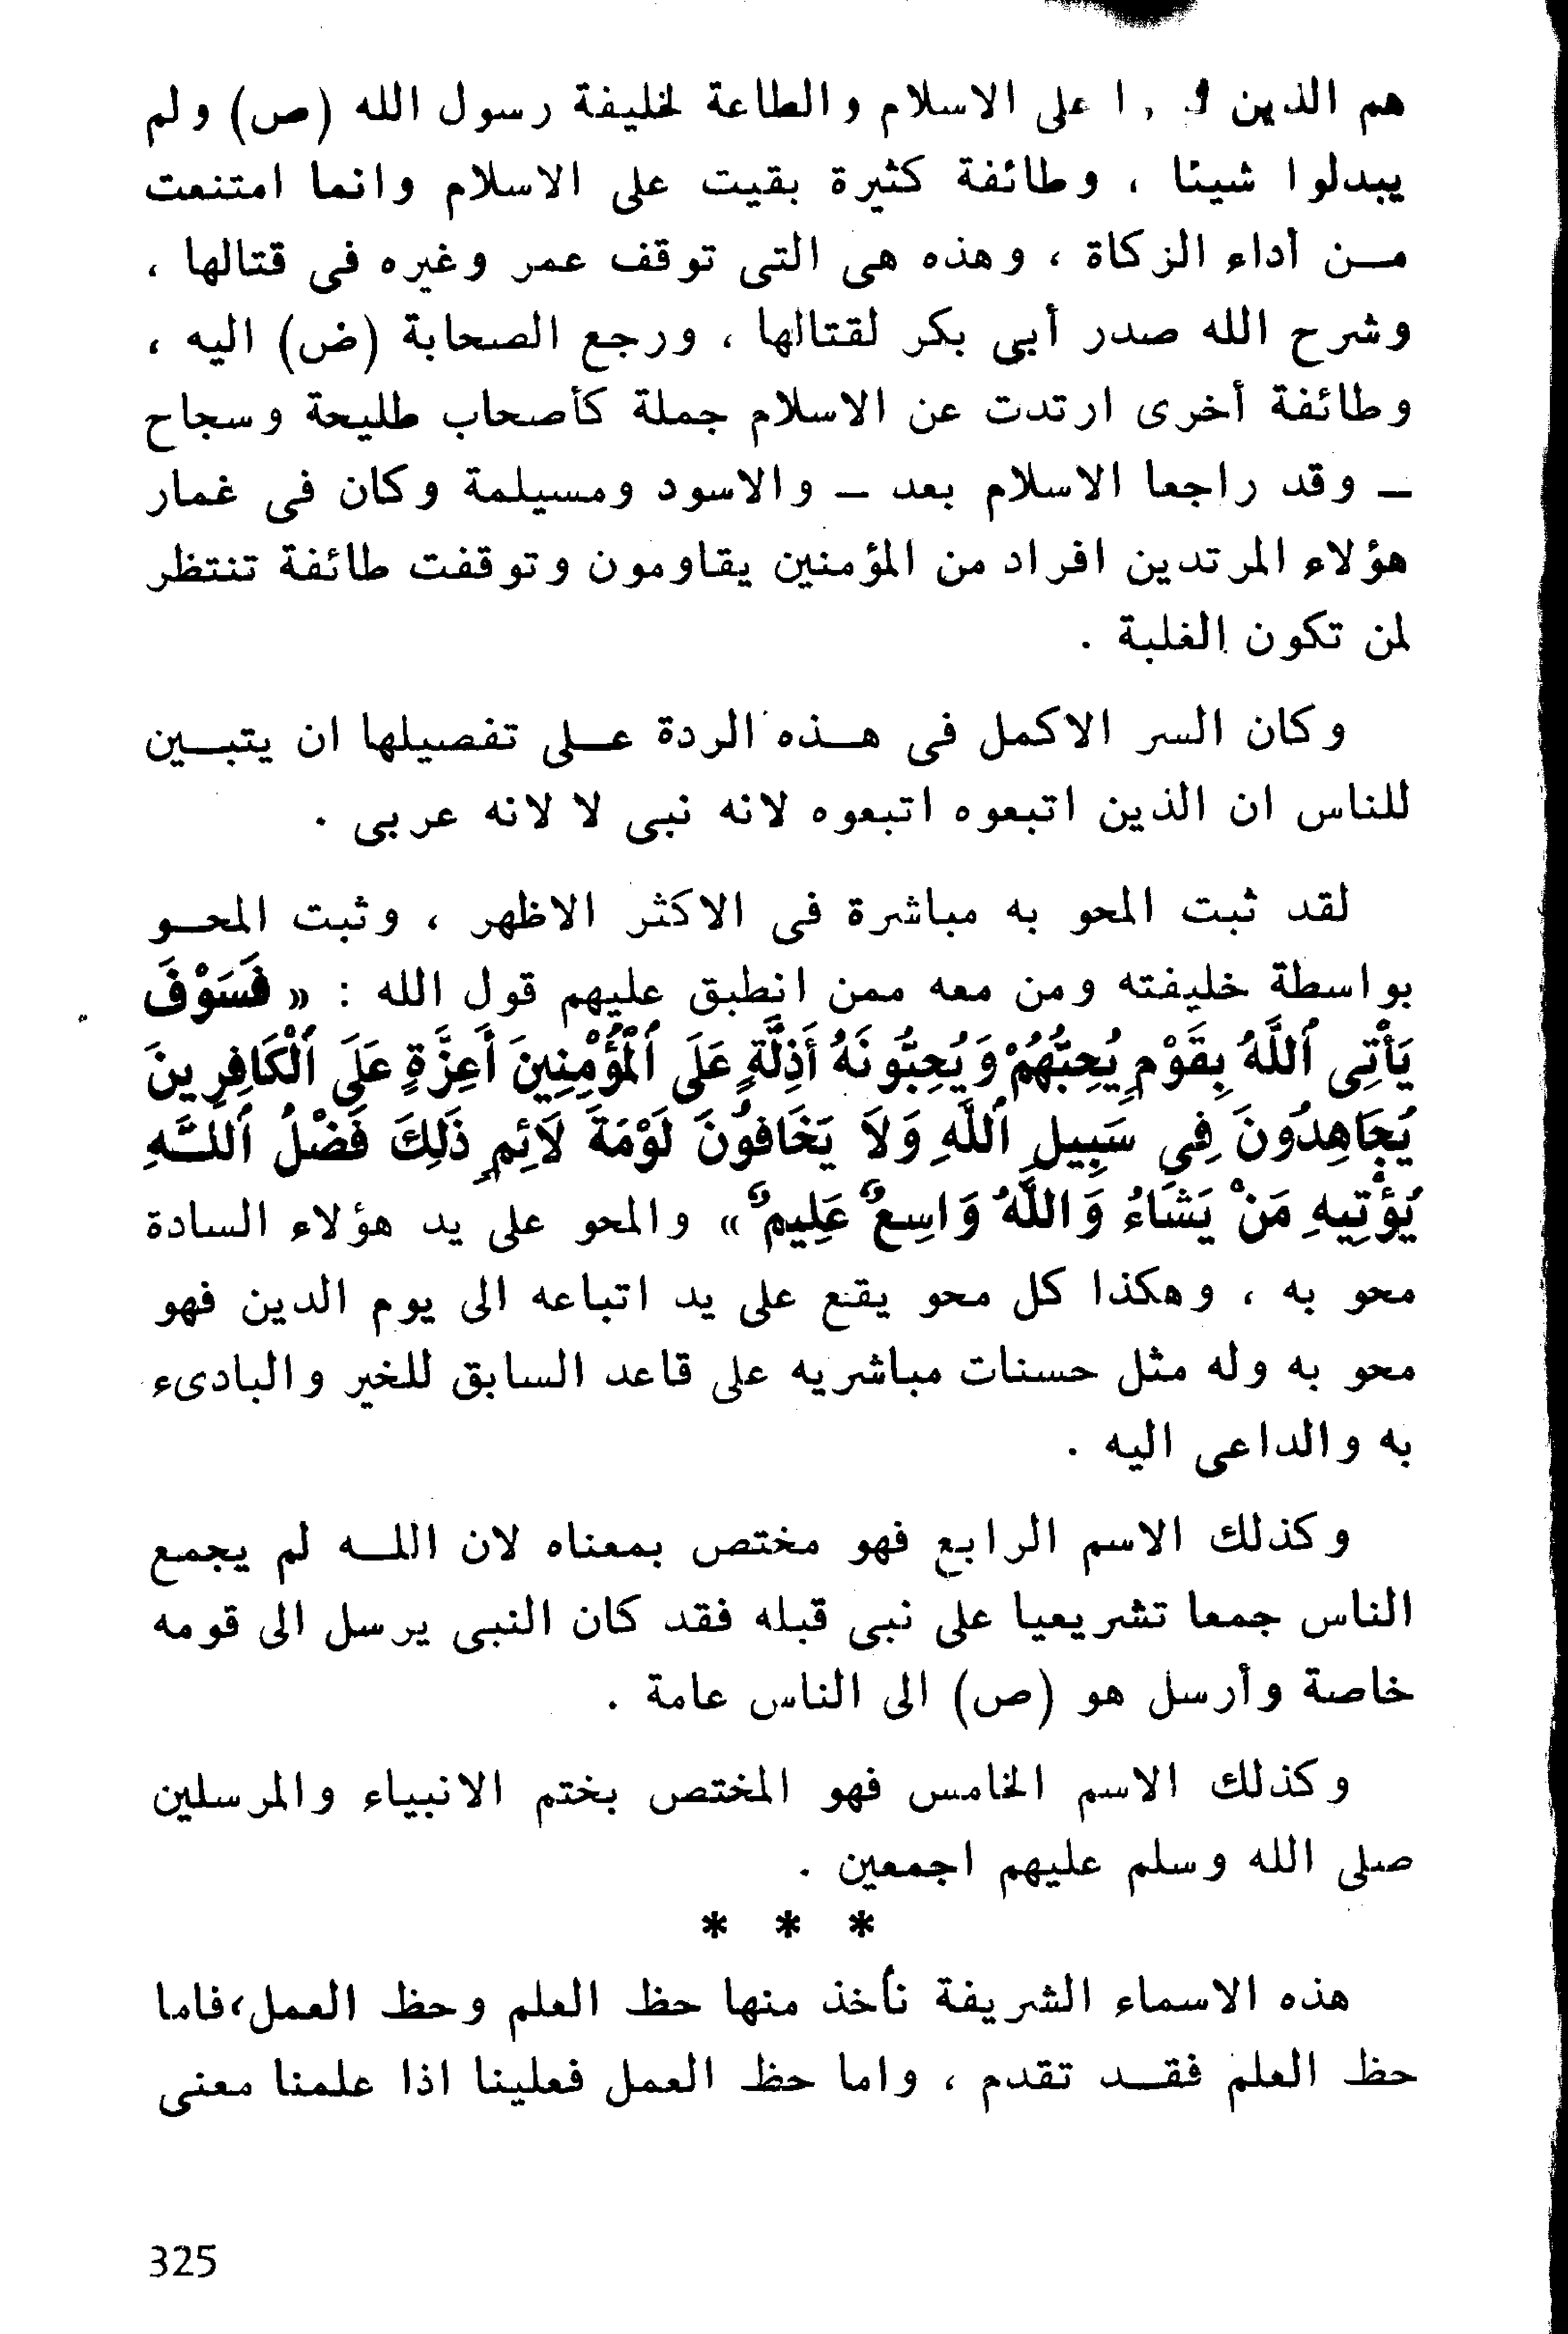 هم الذين على الاسلام والطاعة لخليفة رسول الله (ص) ولم
يبدلوا شيئا ، وطائفة كثيرة بقيت على الاسلام وانما امتنعت
مـن أداء الزكاة ، وهذه هى التى توقف عمر وغيره فى قتالها ،
وشرح الله صدر أبى بكر لقتالها ، ورجع الصحابة (ض) اليه ،
وطائفة أخرى ارتدت عن الاسلام جملة كأصحاب طليحة وسجاح
ـ وقد راجعا الاسلام بعد ـ والاسود ومسيلمة وكان فى غمار
هؤلاء المرتدين افراد من المؤمنين يقاومون وتوقفت طائفة تنتظر
لمن تكون الغلبة .
وكان السر الاكمل فى هـذه الردة عـلى تفصيلها ان يتبـين
للناس ان الذين اتبعوه اتبعوه لانه نبى لا لانه عربى .
لقد ثبت المحو به مباشرة فى الاكثر الاظهر ، وثبت المحـو
بواسطة خليفته ومن معه ممن انطبق عليهم قول الله : « فَسَوْفَ
يَأْتِى ٱللَّهُ بِقَوْمٍ يُحِبُّهُمْ وَيُحِبُّونَهُ أَذِلَّةٍ عَلَى ٱلْمُؤْمِنِينَ أَعِزَّةٍ عَلَى ٱلْكَافِرِينَ
يُجَاهِدُونَ فِي سَبِيلِ ٱللَّهِ وَلاَ يَخَافُونَ لَوْمَةَ لَائِمٍ ذَلِكَ فَضْلُ ٱللَّـهِ
يُؤْتِيهِ مَنْ يَشَاءُ وَاللَّهُ وَاسِعٌ عَلِيمٌ» والمحو على يد هؤلاء السادة
محو به ، وهكذا كل محو يقع على يد اتباعه الى يوم الدين فهو
محو به وله مثل حسنات مباشريه على قاعد السابق للخير والبادىء
به والداعى اليه .
وكذلك الاسم الرابع فهو مختص بمعناه لان اللـه لم يجمع
الناس جمعا تشريعيا على نبى قبله فقد كان النبى يرسل الى قومه
خاصة وأرسل هو (ص) الى الناس عامة .
وكذلك الاسم الخامس فهو المختص بختم الانبياء والمرسلين
صلى الله وسلم عليهم اجمعين .
* * *
هذه الاسماء الشريفة نأخذ منها حظ العلم وحظ العمل،فاما
حظ العلم فقـد تقدم ، واما حظ العمل فعلينا اذا علمنا معنى
325